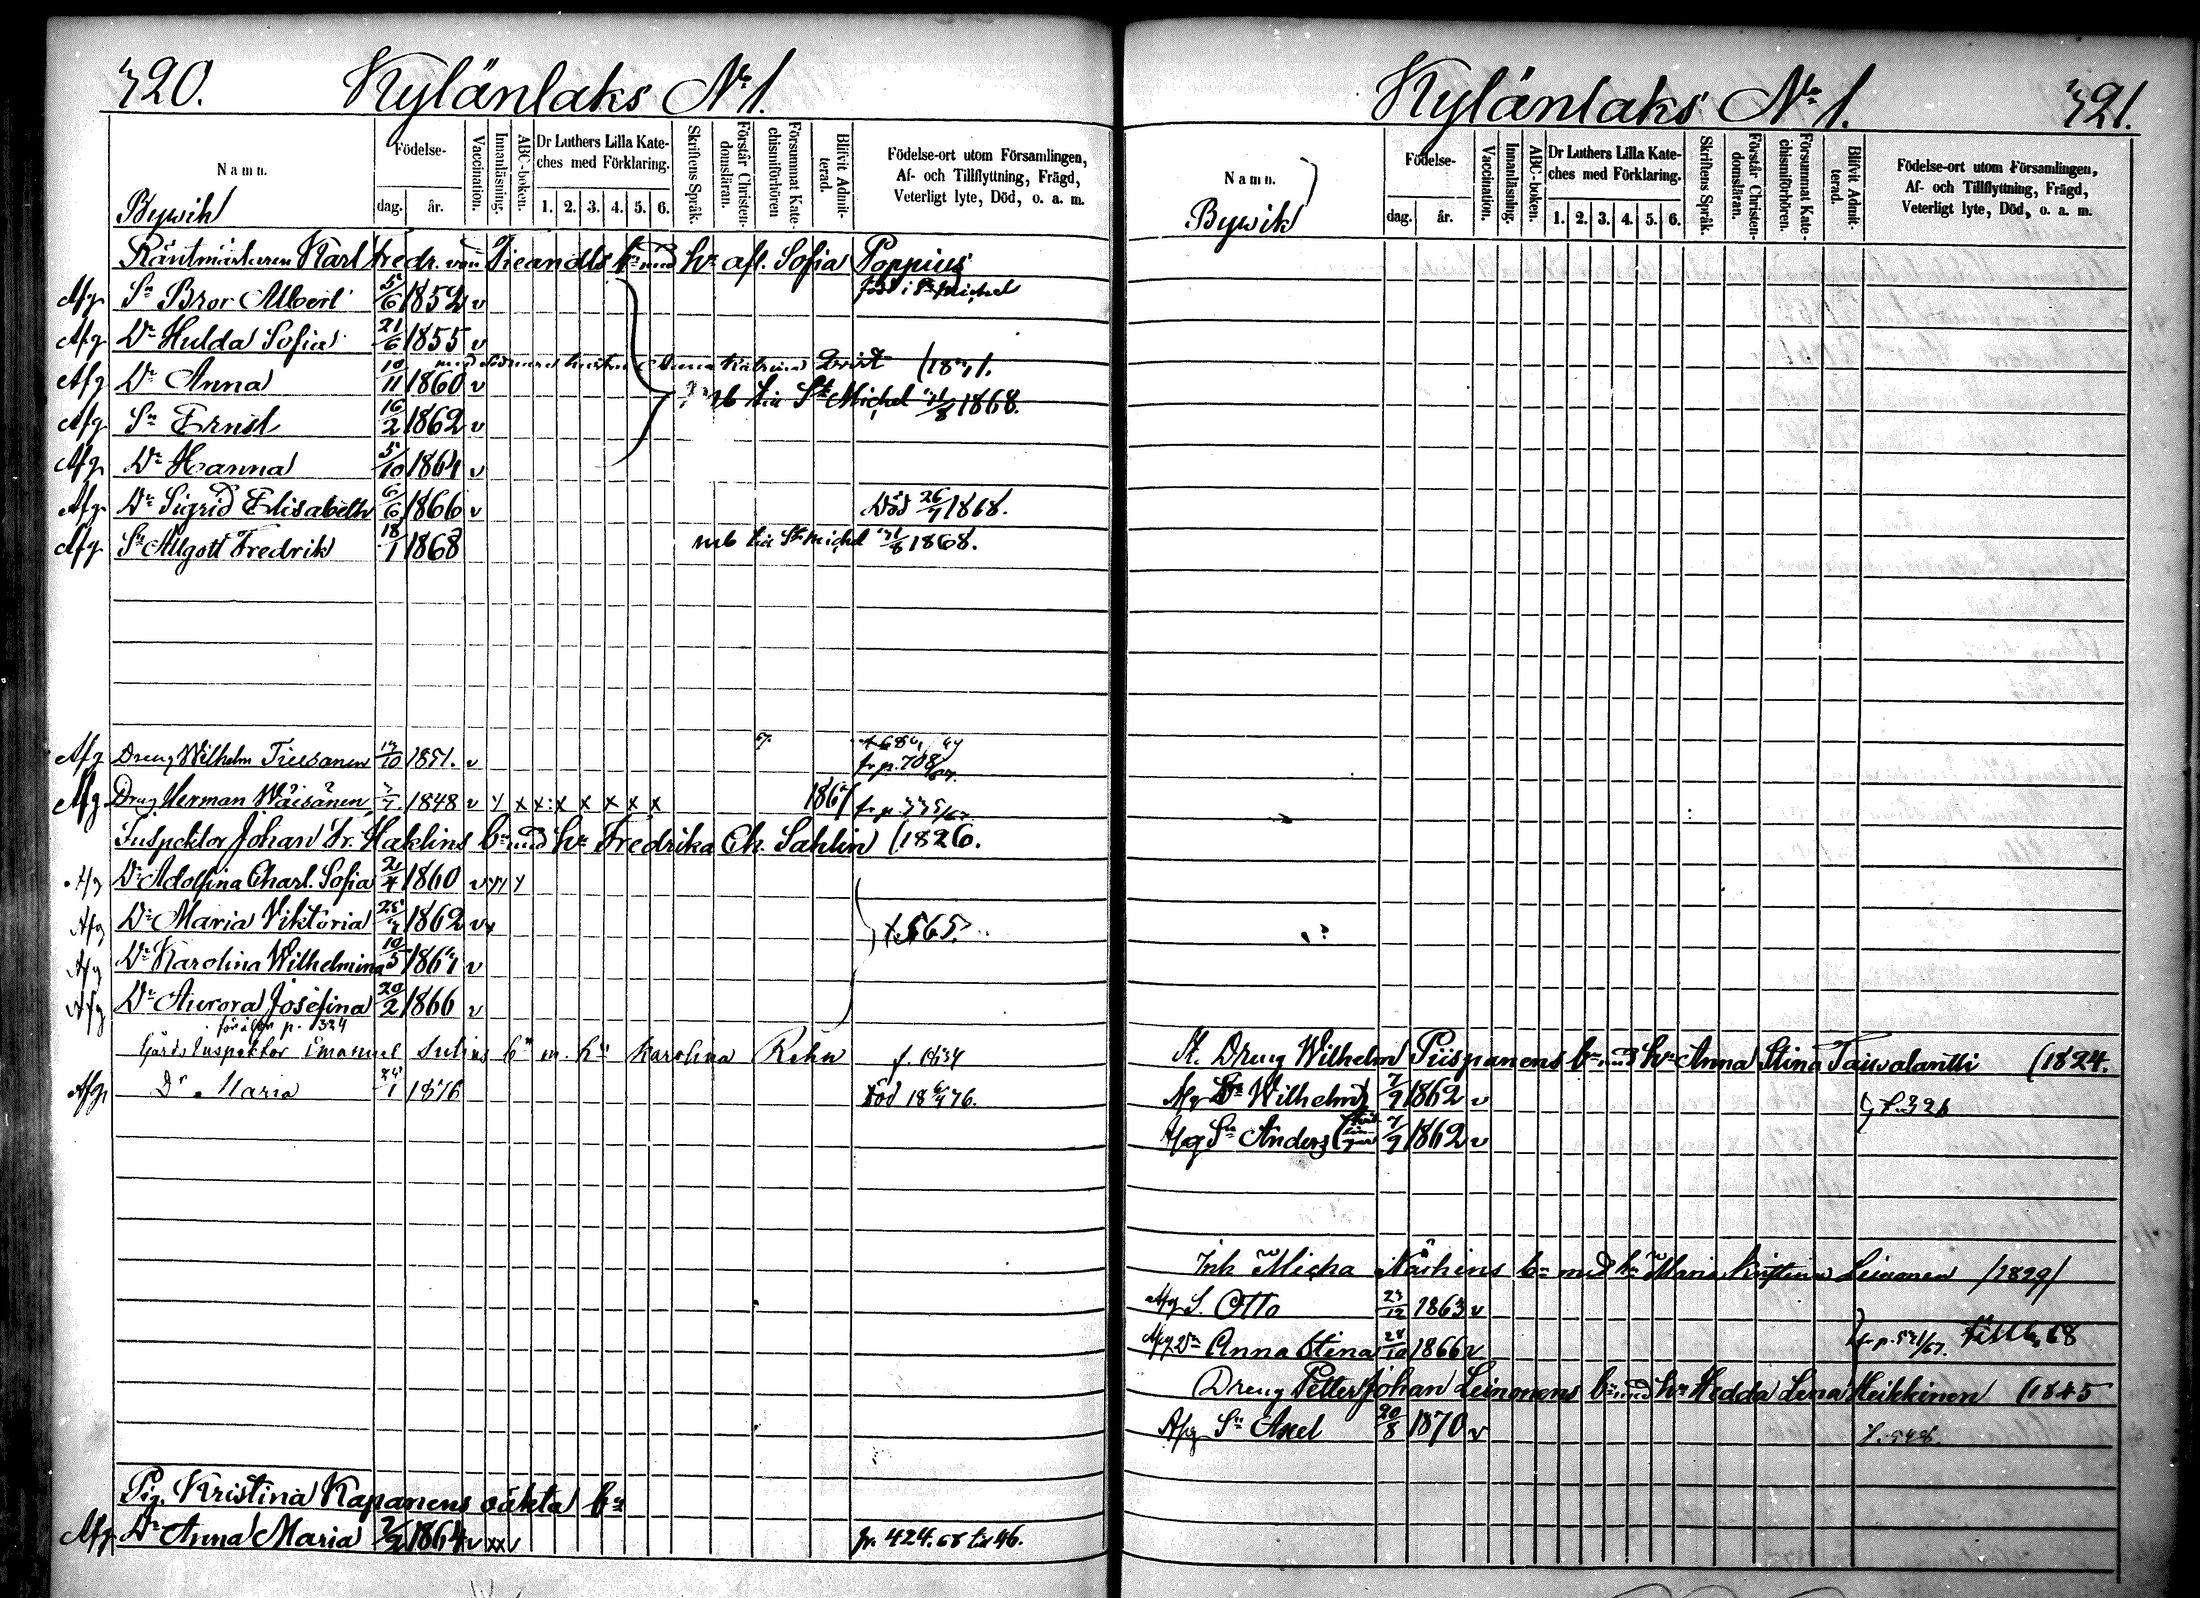 320. Kylänlaks No 1.
Namn. Födelse- dag. år. Vaccination. Innanläsning. ABC-boken. Dr Luthers Lilla Kateches med Förklaring. 1. 2. 3. 4. 5. 6. Skriftens Språk. Förstår Christendomsläran. Försummat Katechismiförhören Blifvit Admitterad. Födelse-ort utom Församlingen, Af- och Tillflyttning, Frägd, Veterligt lyte, Död, o. a. m.
Bywik
Räntmästaren Karl Fredr. von Fieandts bn med hu afl. Sofia Poppius
Afg Sn Bror Albert 5/6 1852 v född i St Michel
Afg Dr Hulda Sofia 21/6 1855 v
med Anna Katrina Qvist (1831.
Afg Dr Anna 10/11 1860 v
mb till St Michel 31/8 1868.
Afg Sn Ernst 16/2 1862 v
Afg Dr Hanna 5/10 1864 v
Afg Dr Sigrid Elisabeth 6/6 1866 v Död 26/7 1868.
Afg Sn Algott Fredrik 18/1 1868 mb till St Michel 31/8 1868.
Afg Dreng Wilhelm Tiusanen 13/10 1851. v fr p. 708/67.
Afg Dreng Herman Wäisänen 1848 v y x x x x x x x 1867 fr p. 335/67.
Inspektor Johan Fr. Haklins bn med hu Fredrika Ch. Sahlin (1826.
Afg Dr Adolfina Charl. Sofia 1860 v y y y
Afg Dr Maria Viktoria 1862 v y t. 565.
Afg Dr Karolina Wilhelmina 10/5 1864 v
Afg Dr Aurora Josefina 20/2 1866 v
föräldr p. 324
Gårds Inspektor Emanuel Julius bn m. hu Karolina Rehn
Afg Dr Maria 1876 Död 1876.
Pig. Kristina Kapanens oäkta bn
Afg Dr Anna Maria 1864 v x x v fr. 424. 68 till 46.
Kylänlaks No 1. 321.
Namn. Födelse- dag. år. Vaccination. Innanläsning. ABC-boken. Dr Luthers Lilla Kateches med Förklaring. 1. 2. 3. 4. 5. 6. Skriftens Språk. Förstår Christendomsläran. Försummat Katechismiförhören. Blifvit Admitterad. Födelse-ort utom Församlingen, Af- och Tillflyttning, Frägd, Veterligt lyte, Död, o. a. m.
Bywik
Dreng Wilhelm Piispanens bn med hu Anna Stina Taivalantti (1824.
Afg Sn Wilhelm 7/9 1862 v
t. 326
Afg Sn Anders 7/9 1862 v
Inh Micha Närhins bn med hu Maria Kristina Leinonen (1829)
Afg S. Otto 23/12 1863 v
Afg Dr Anna Stina 28/10 1866 v fr p. 531/67. 68
Dreng Petter Johan Leinonens bn med hu Hedda Lena Heikkinen (1845
Afg Sn Axel 20/8 1870 v t. 548.